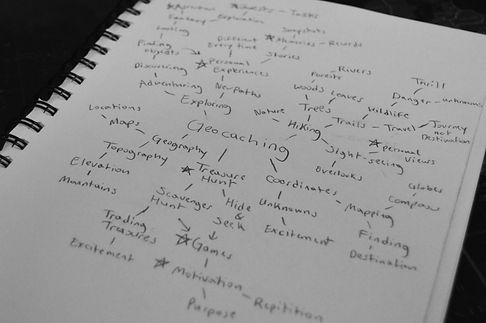 Quests - Tasks
Fantasy Exploration
Looting Snapshots
Finding Different Memories - Records
objects Every time Stories
Discovering Personal Rivers
Experiences Forests Thrill
Adventuring New Paths Woods Leaves Danger - unknowns
Exploring Nature Trees Wildlife
Locations Trails - Travel - Journey
Maps Geocaching Hiking not
Geography Destination
Topography Sight-seeing Personal
Views
Elevation Treasure Overlooks
Mountains Hunt Coordinates Globes
Scavenger Hide Unknowns Mapping Compass
Hunt &
Trading Seek Excitement Finding
Treasures Games Destination
Excitement Motivation - Repitition
Purpose